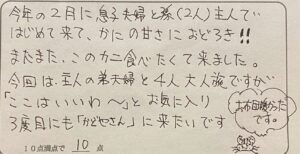 今年の2月に息子夫婦と孫(2人)主人で
はじめて来て、かにの甘さにおどろき!!
またまた、このカニ食べたくて来ました。
今回は、主人の弟夫婦と4人大人旅ですが
「ここはいいわ〜」とお気に入り
3度目にも「かどやさん」に来たいです
お布団暖かった
です。
10点満点で 10 点